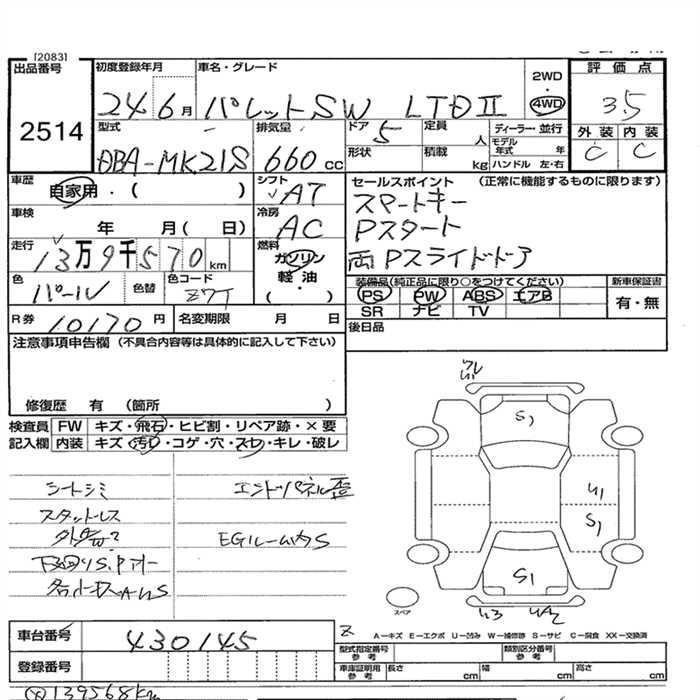 [2083]
出品番号
2514
初度登録年月
24 6月
車名・グレード
パレットSW LTDⅡ
2WD
・
4WD
評価点
3.5
外装 内装
C C
型式
DBA-MK21S
排気量
660cc
ドア
5
形状
定員
人
積載
kg
ディーラー・並行
モデル年式 年
ハンドル 左・右
車歴
自家用・( )
シフト
AT
車検
年 月( 日)
冷房
AC
走行
13万9千570km
燃料
ガソリン
軽油
・
( )
色
パール
色替
色コード
Z7T
R券
10170円
名変期限 月 日
セールスポイント (正常に機能するものに限ります)
スマートキー
Pスタート
両Pスライドドア
装備品(純正品に限り○をつけてください)
PS PW ABS エアB
SR ナビ TV
新車保証書
有・無
後日品
注意事項申告欄 (不具合内容等は具体的に記入して下さい)
修復歴 有 (箇所 )
検査員記入欄
FW キズ・飛石・ヒビ割・リペア跡・×要
内装 キズ・汚レ・コゲ・穴・スレ・キレ・破レ
シートシミ
スタットレス
エンドパネル歪
EGルーム内S
S1
U1
S1
S1
U3 UA2
スペア
A—キズ E—エクボ U—凹み W—補修跡 S—サビ C—腐食 XX—交換済
車台番号
430145
登録番号
型式指定番号 参考
類別区分番号 参考
車庫証明用 参考
長さ cm
幅 cm
高さ cm
139568km